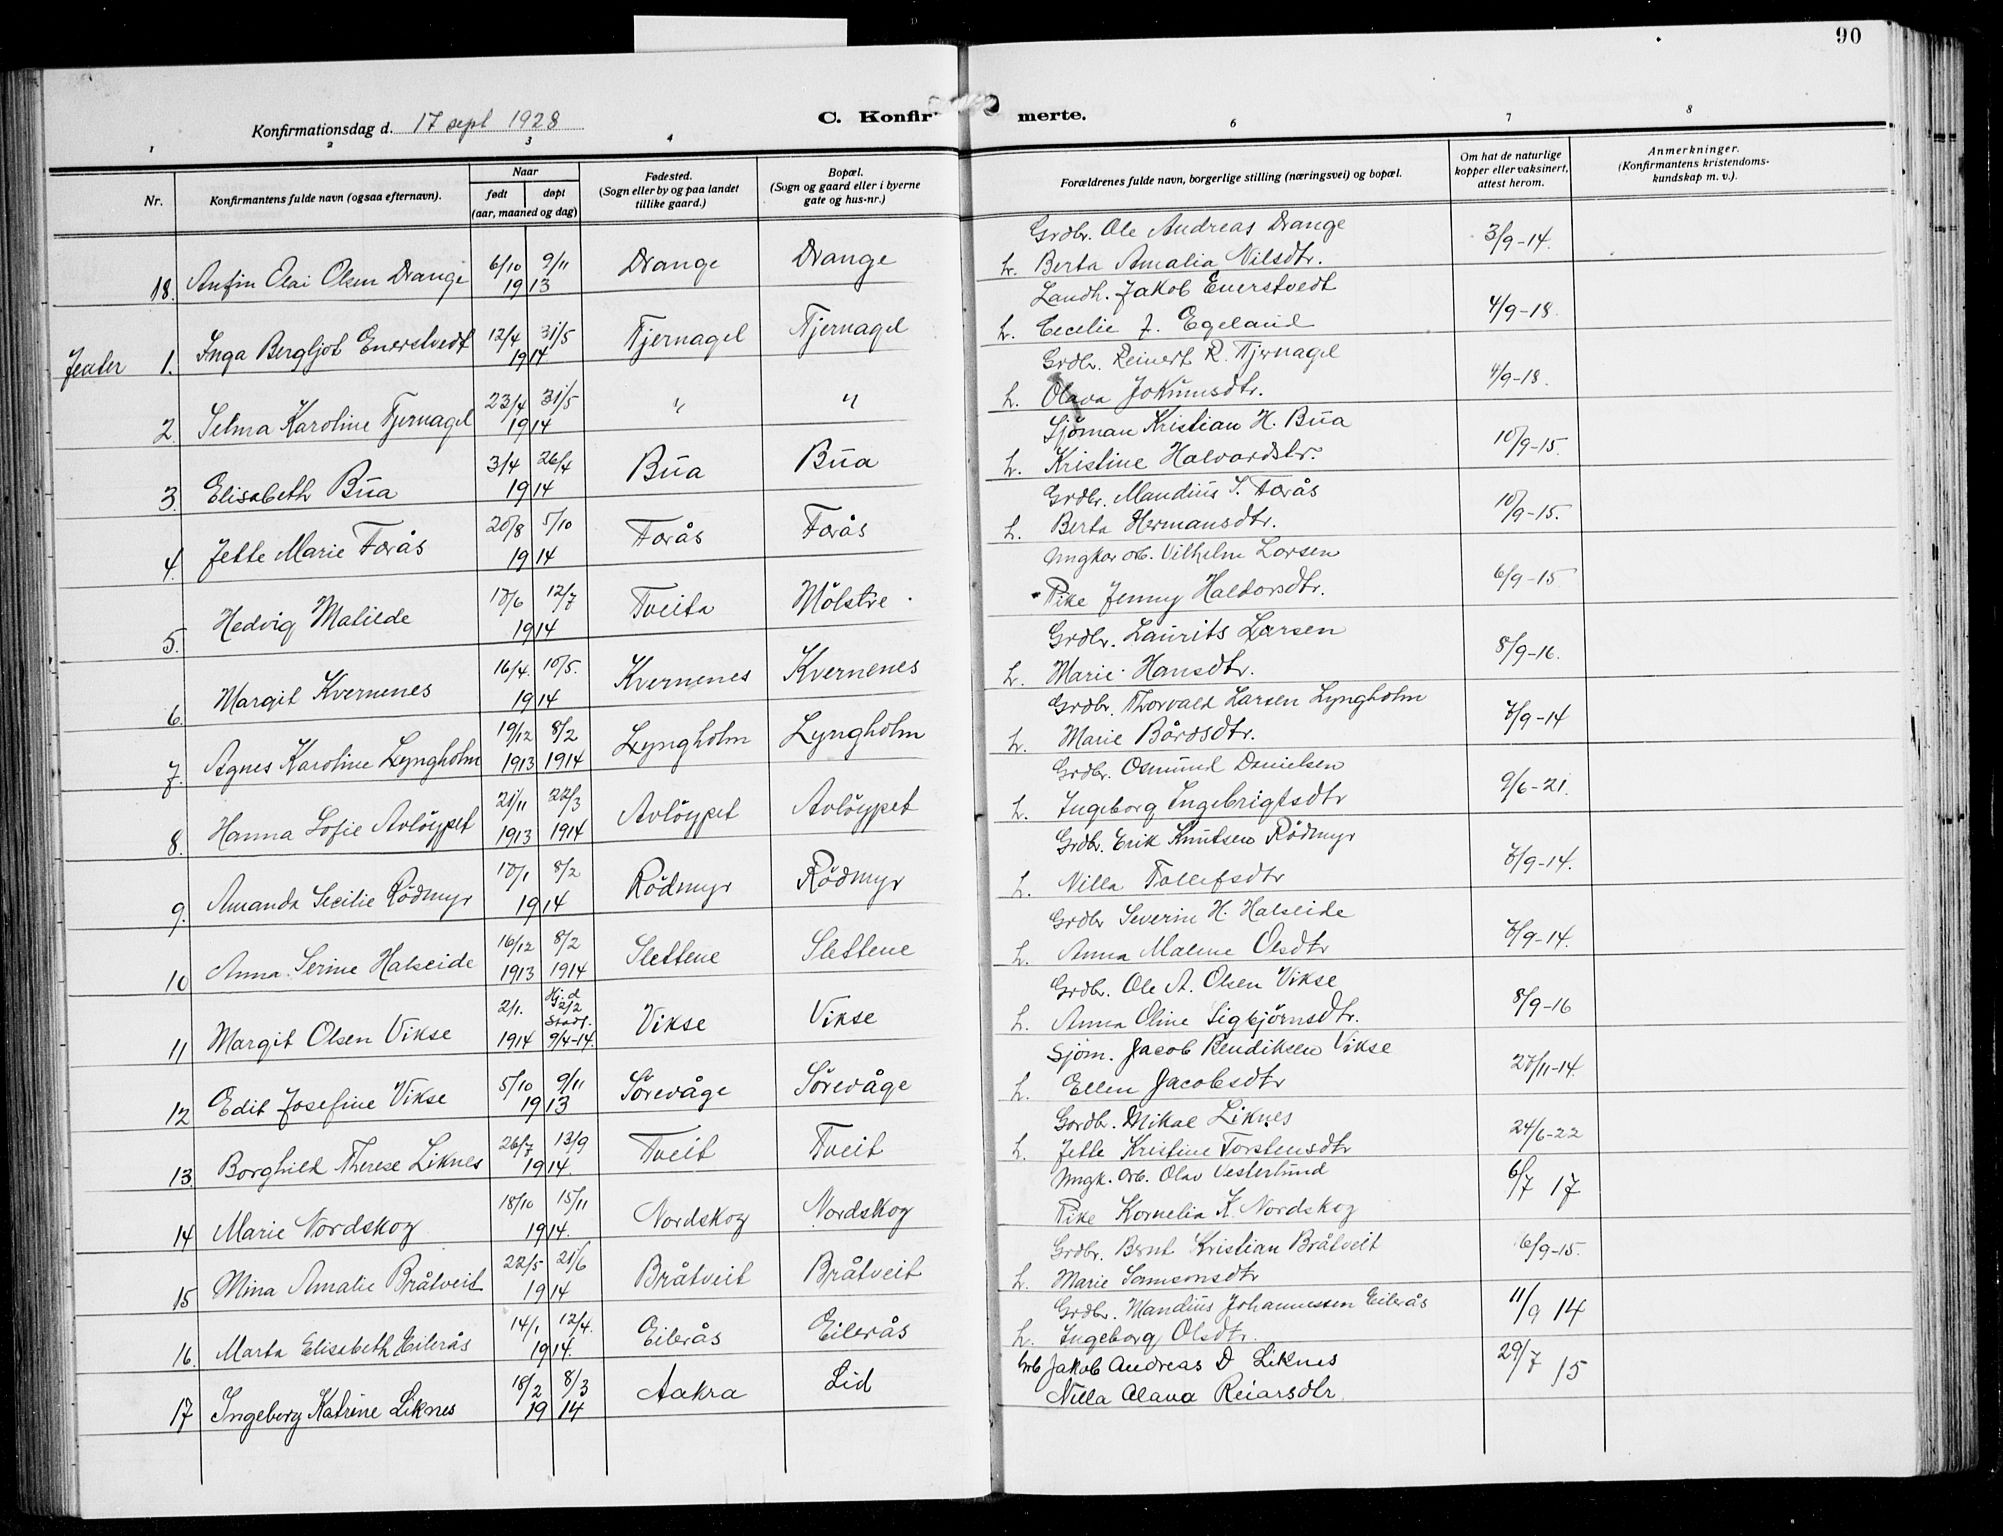 90
Konfirmationsdag d. 17 sept 1928
C. Konfirmerte.
1 2 3 4 6 7 8
Nr.
Konfirmantens fulde navn (ogsaa efternavn).
Naar
født døpt
(aar, maaned og dag)
Fødested.
(Sogn eller by og paa landet
tillike gaard.)
Bopæl.
(Sogn og gaard eller i byerne
gate og hus-nr.)
Forældrenes fulde navn, borgerlige stilling (næringsvei) og bopæl.
Om hat de naturlige
kopper eller vaksinert,
attest herom.
Anmerkninger.
(Konfirmantens kristendoms-
kundskap m. v.).
18. Anfin Olai Olsen Drange 6/10 9/11 1913 Drange Drange
Grdbr. Ole Andreas Drange
h. Berta Amalia Nilsdtr. 3/9-14.
Jenter 1. Inga Bergljot Enerstvedt 12/4 31/5 1914 Tjernagel Tjernagel
Landh. Jakob Enerstvedt
h. Cecelie J. Egeland 4/9-18.
2 Selma Karoline Tjernagel 23/4 31/5 1914 " "
Grdbr. Reinert R. Tjernagel
h. Olava Jokumsdtr. 4/9-18.
3 Elisabeth Bua 3/4 26/4 1914 Bua Bua
Sjøman Kristian H. Bua
h. Kristine Halvardsdtr. 10/9-15.
4. Jette Marie Førås 20/8 5/10 1914 Førås Førås
Grdbr. Mandius S. Førås
h. Berta Hermansdtr. 10/9-15.
5. Hedvig Matilde 10/6 12/7 1914 Tveita Mølstre
Ungkar arb. Vilhelm Larsen
Pike Jenny Haldorsdtr. 6/9-15
6. Margit Kvernenes 16/4. 10/5. 1914 Kvernenes Kvernenes
Grdbr. Laurits Larsen
h. Marie Hansdtr. 8/9-16.
7. Agnes Karoline Lyngholm 19/12 1913 8/2 1914 Lyngholm Lyngholm
Grdbr. Thorvald Larsen Lyngholm
h. Marie Bårdsdtr. 7/9-14
8. Hanna Sofie Avløypet 21/11 1913 22/3 1914 Avløypet Avløypet
Grdbr. Osmund Danielsen
h. Ingeborg Ingebrigtsdtr 9/6-21.
9. Amanda Secilie Rødmyr 10/1 8/2 1914 Rødmyr Rødmyr
Grdbr. Erik Knutsen Rødmyr
h. Nilla Tollefsdtr 7/9-14.
10 Anna Serine Halseide 16/12 1913 8/2 1914 Slettene Slettene
Grdbr Severin H. Halseide
h. Anna Malene Olsdtr 7/9-14.
11 Margit Olsen Vikse 2/1. 1914 Hj.d 2/2 Stadf. 9/4-14. Vikse Vikse
Grdbr. Ole A. Olsen Vikse
h. Anna Oline Sigbjørnsdtr. 8/9-16
12 Edit Josefine Vikse 5/10 9/11 1913 Sørevåge Sørevåge
Sjøm. Jacob Bendiksen Vikse
h. Ellen Jacobsdtr 27/11-14.
13. Borghild Therese Liknes 26/7 13/9 1914. Tveit Tveit
Gardbr. Mikal Liknes
h. Jette Kristine Torstensdtr 24/6-22
14 Marie Nordskog 18/10 15/11 1914. Nordskog Nordskog
Ungk. arb. Olav Vesterlund
Pike Kornelia K. Nordskog 6/7 17
15 Mina Amalie Bråtveit 22/5 21/6 1914 Bråtveit Bråtveit
Grdbr. Bernt Kristian Bråtveit
h. Marie Samsonsdtr 6/9-15.
16. Marta Elisabeth Eilerås 14/1 12/4. 1914. Eilerås Eilerås
Grdbr. Mandius Johannessen Eilerås
h. Ingeborg Olsdtr. 11/9 14
17 Ingeborg Katrine Liknes 18/2 8/3 1914 Aakra Lid
Grb Jakob Andreas D Liknes
Nilla Olava Reiarsdtr. 29/7 15